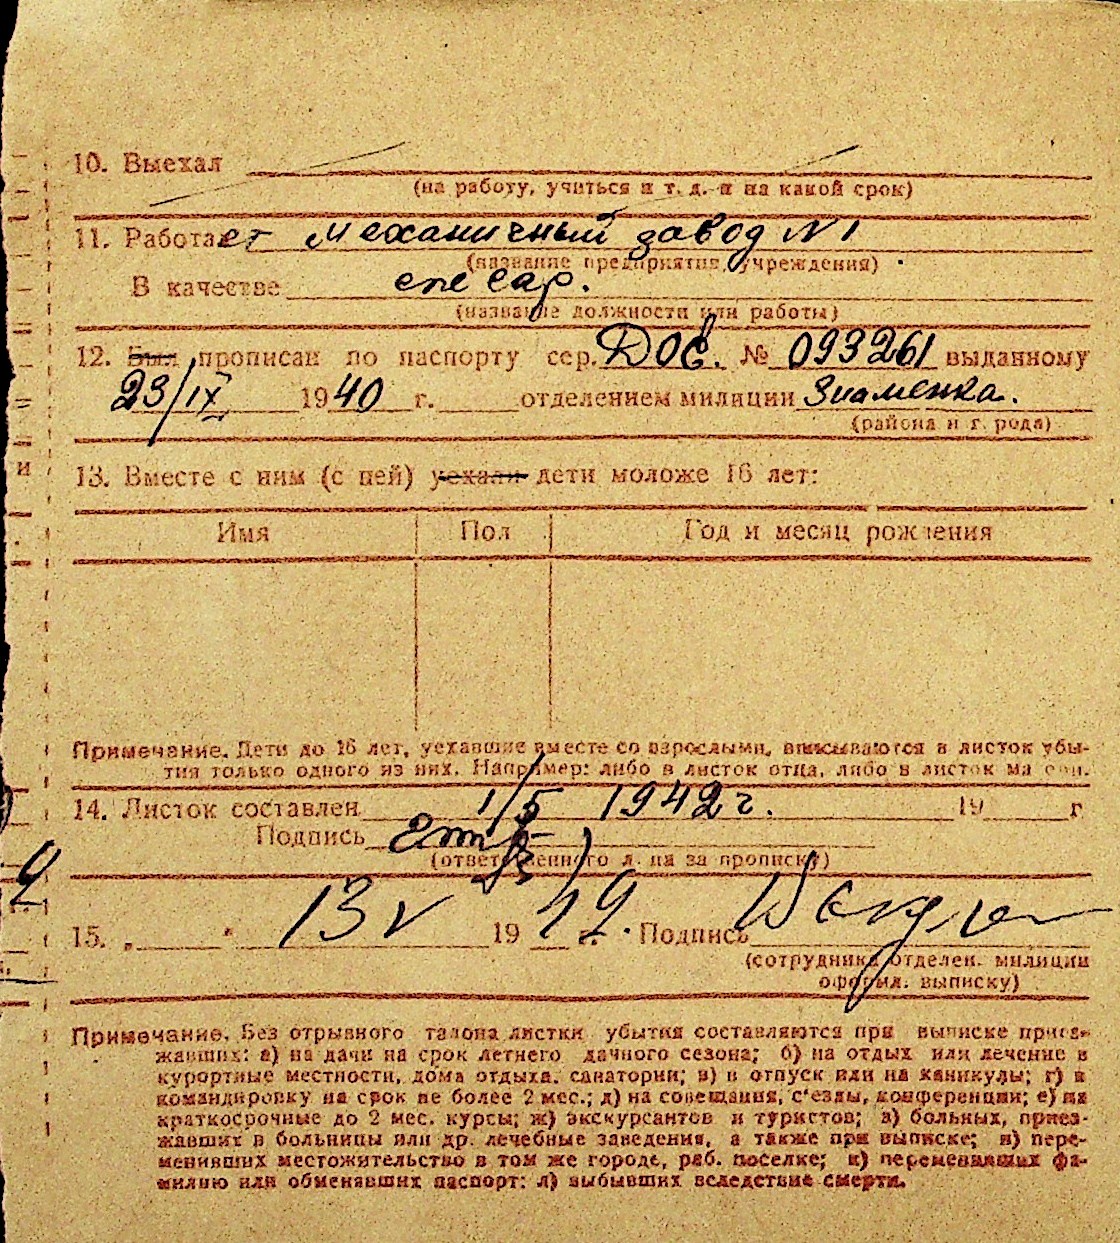 10. Выехал
(на работу, учиться и т. д. и на какой срок)
11. Работает механичный завод N 1
(название предприятия, учреждения)
В качестве слесар.
(название должности или работы)
12. Был прописан по паспорту сер. № 093261 выданному
23/IX 1940 г. отделением милиции Знаменка.
(района и г. рода)
13. Вместе с ним (с ней) уехали дети моложе 16 лет:
Имя Пол Год и месяц рождения
Примечание. Дети до 16 лет, уехавшие вместе со взрослыми, вписываются в листок убы-
тия только одного из них. Например: либо в листок отца, либо в листок ма ери.
14. Листок составлен 1/5 1942 г. 19 г
Подпись
(ответственного л. на за прописку)
15. „ " 13 V 19 42. Подпись
(сотрудника отделен. милиции
оформл. выписку)
Примечание. Без отрывного талона листки убытия составляются при выписке приез-
жавших: а) на дачи на срок летнего дачного сезона; б) на отдых или лечение в
курортные местности, дома отдыха, санатории; в) в отпуск или на каникулы; г) в
командировку на срок не более 2 мес.; д) на совещания, с'езды, конференции; е) на
краткосрочные до 2 мес. курсы; ж) экскурсантов и туристов; з) больных, приез-
жавших в больницы или др. лечебные заведения, а также при выписке; и) пере-
менивших местожительство в том же городе, раб. поселке; к) переменивших фа-
милию или обменявших паспорт; л) выбывших вследствие смерти.